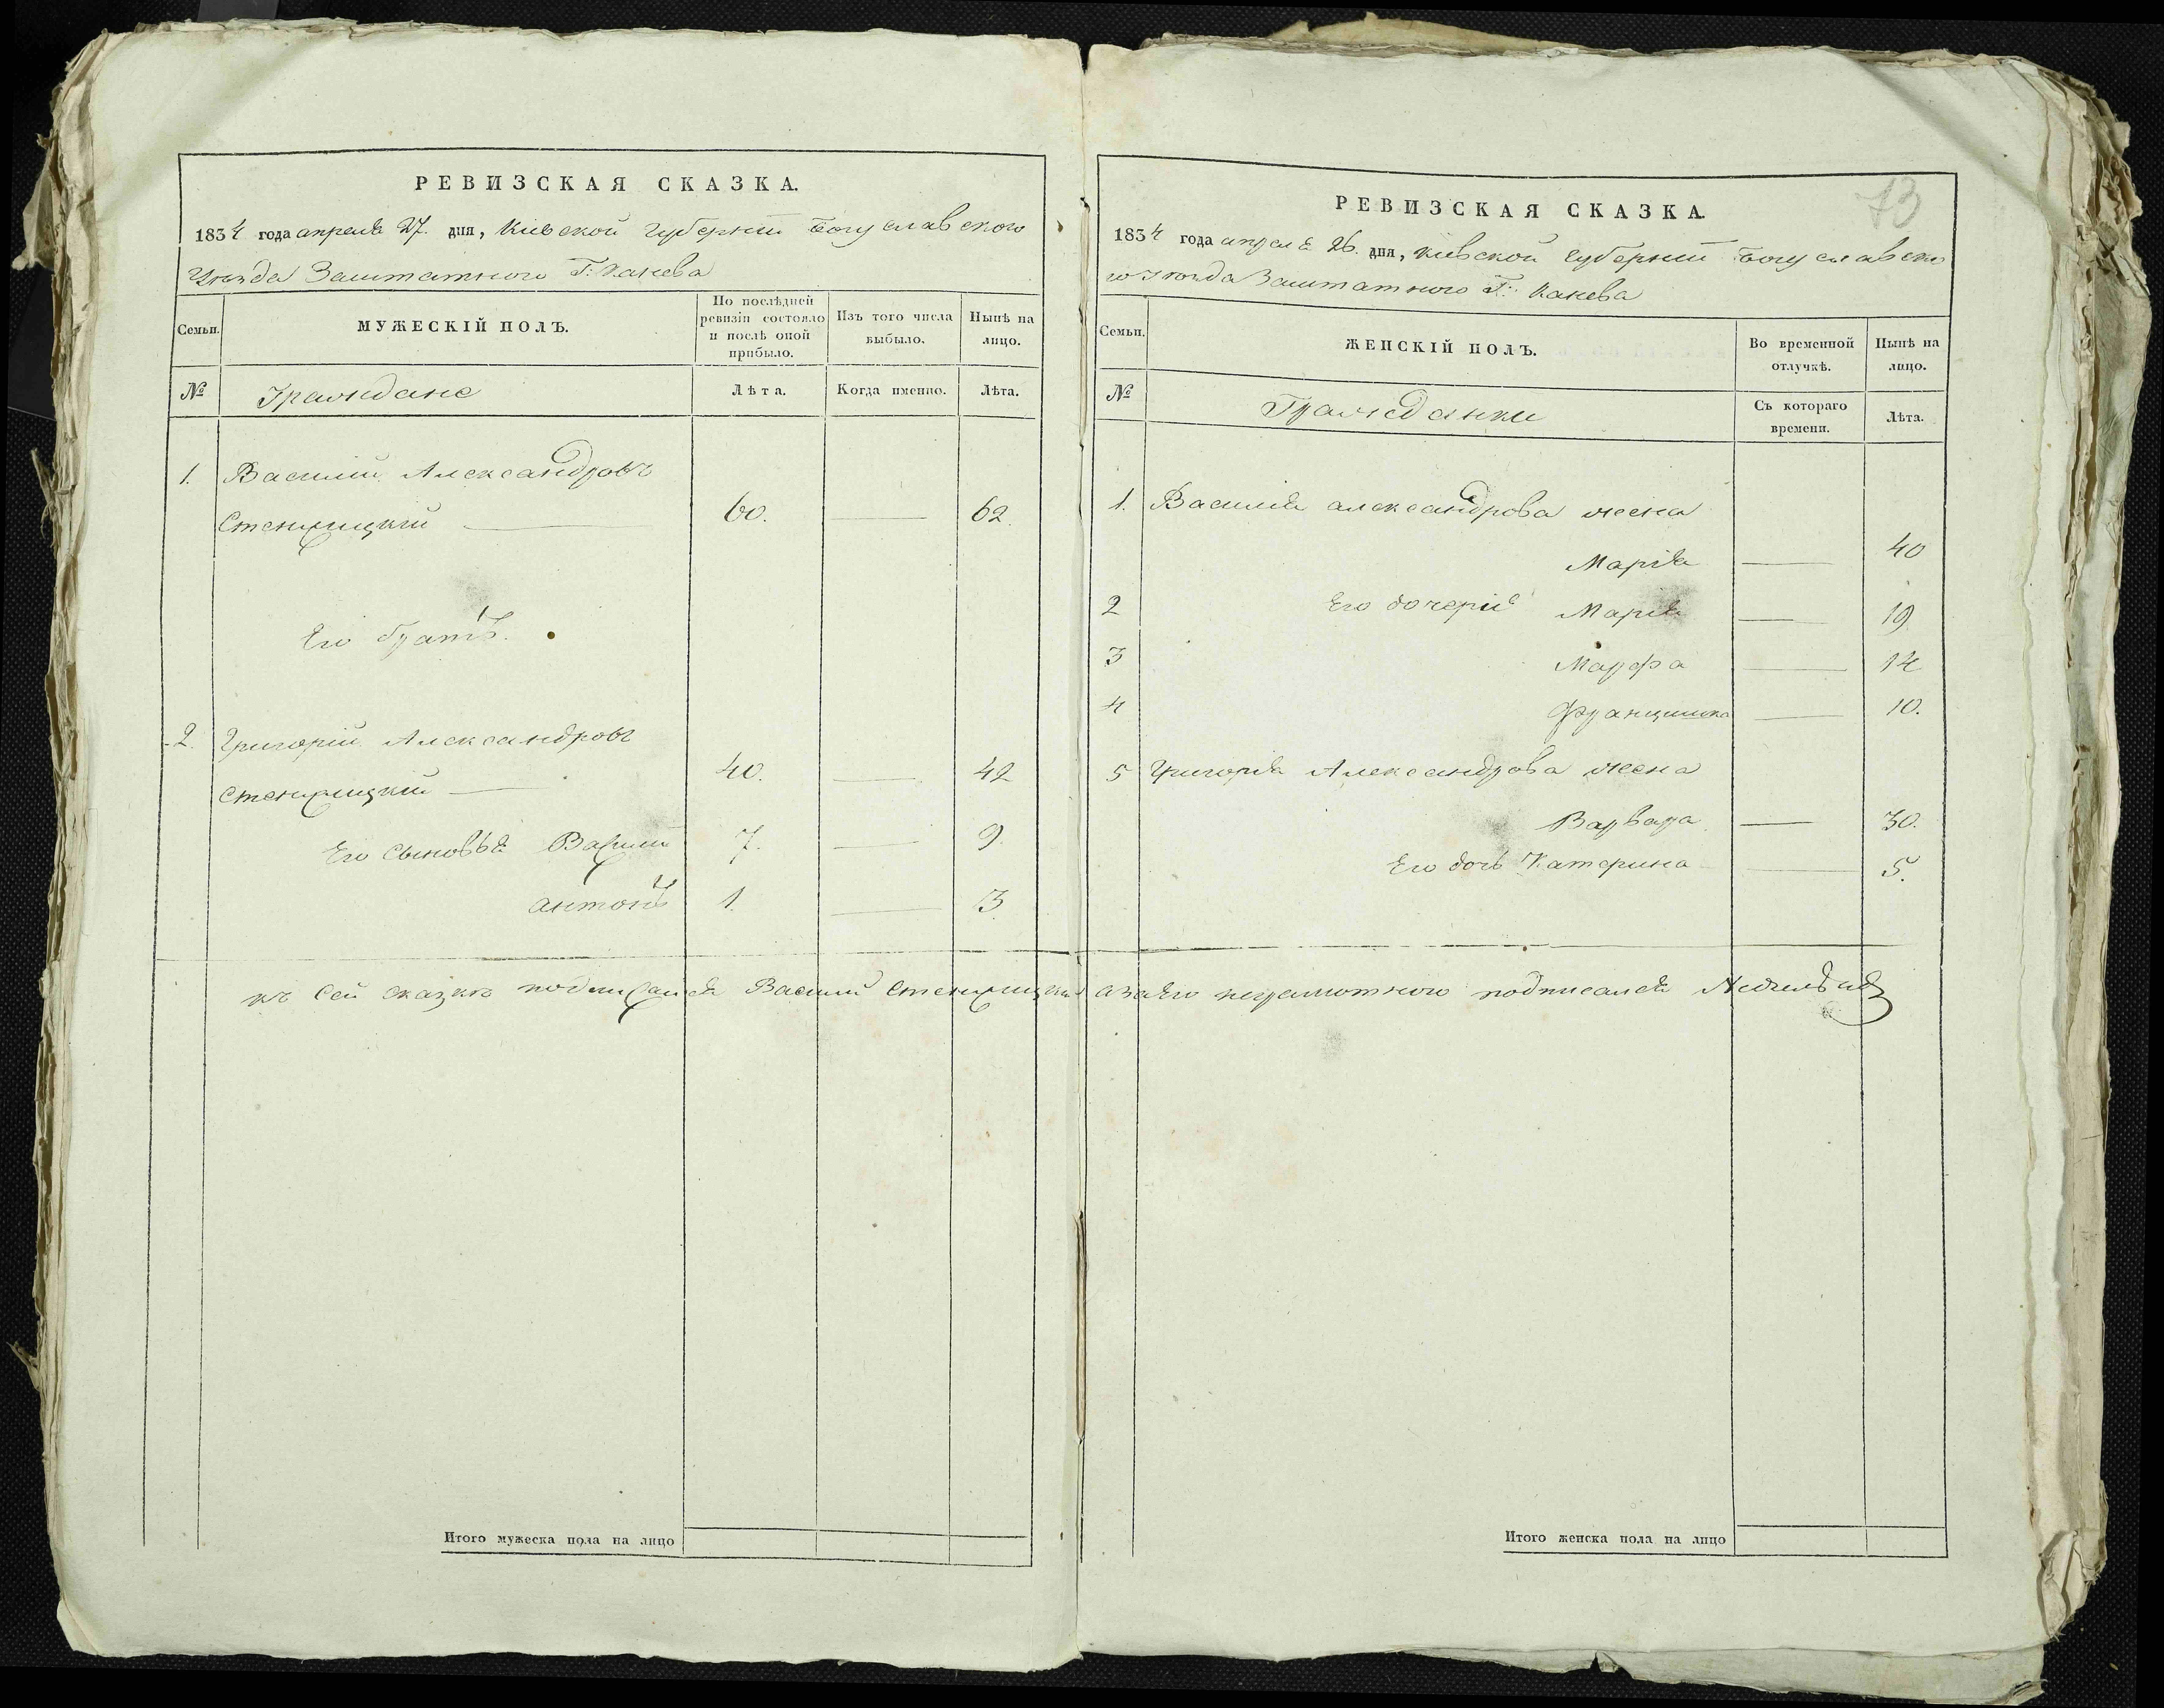 РЕВИЗСКАЯ СКАЗКА.
1834 года апреля 27. дня, Киевской Губернии Богуславского
Уезда Заштатного Г: Канева
Семьи.
МУЖЕСКІЙ ПОЛЪ.
По послѣдней ревизіи состояло и послѣ оной прибыло.
Изъ того числа выбыло.
Нынѣ на лицо.
№
Граждане
Лѣта.
Когда именно.
Лѣта.
1. Василий Александровъ
Стенжицкий 60. 62.
Его братъ.
2. Григорий Александровъ
Стенжицкий 40. 42
Его сыновья Василий 7. 9.
антонъ 1. 3.
къ сей сказкѣ подписался Василий Стенжицкий
Итого мужеска пола на лицо
73
РЕВИЗСКАЯ СКАЗКА.
1834 года апреля 26. дня, Киевской Губернии Богуславско
го Уезда Заштатного Г: Канева
Семьи.
ЖЕНСКІЙ ПОЛЪ.
Во временной отлучкѣ.
Нынѣ на лицо.
№
Гражданки
Съ котораго времени.
Лѣта.
1. Василия александрова жена
Мария 40
2 Его дочерие Мария 19
3 Марфа 14
4 Францишка 10.
5 Григория Александрова жена
Варвара 30.
Его дочь Катерина 5.
а за его неграмотного подписался
Итого женска пола на лицо